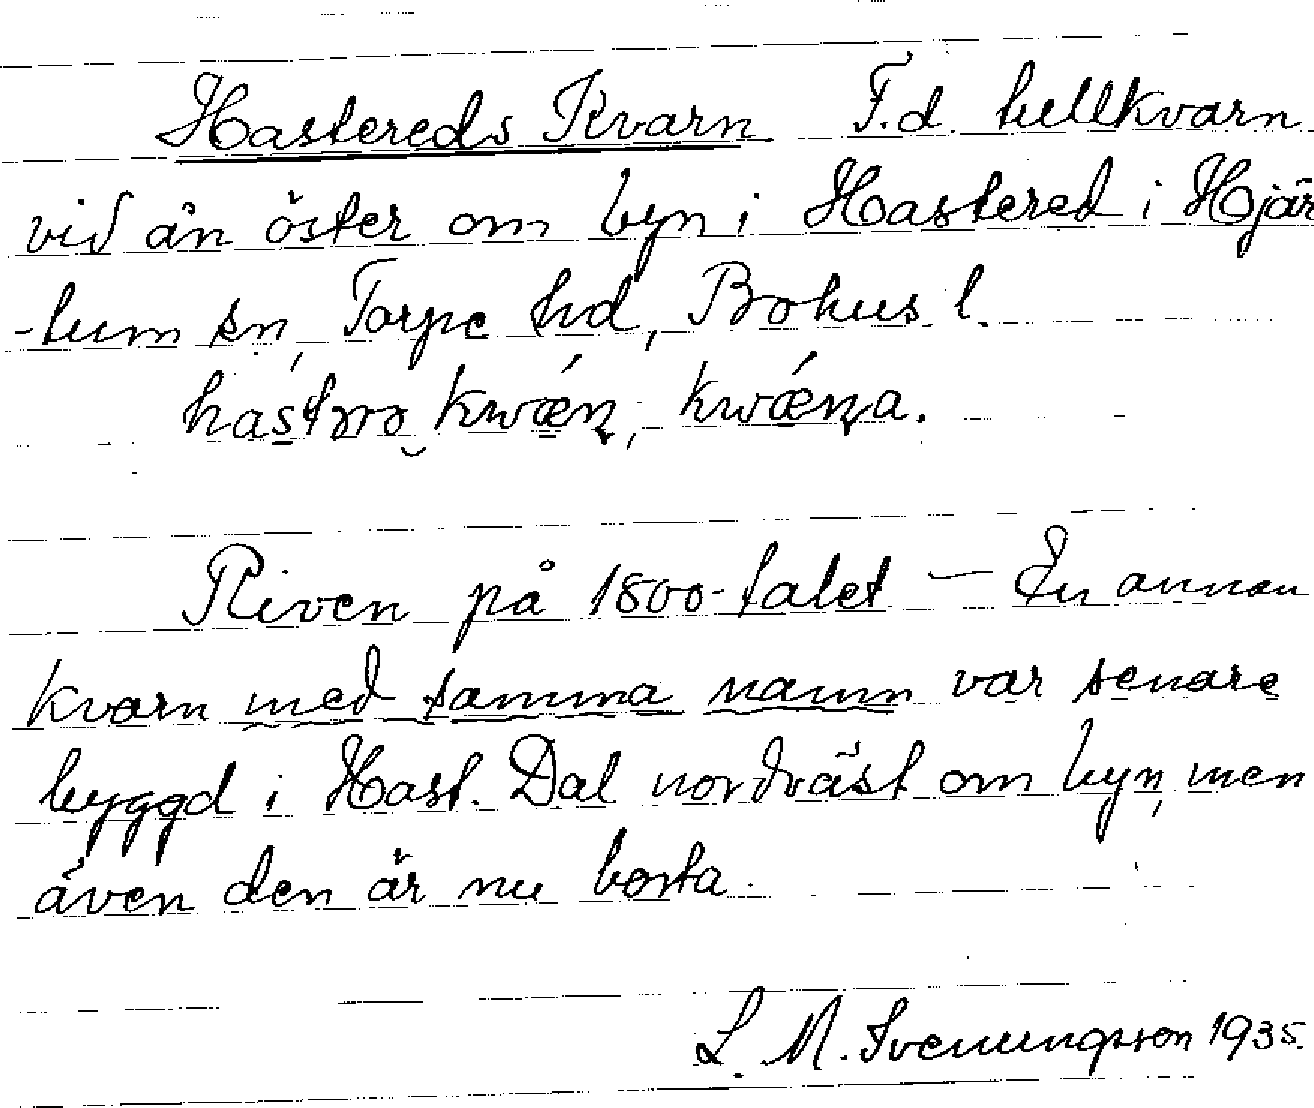 Hastereds Kvarn F.d. tullkvarn
vid ån öster om byn i Hastered i Hjär
-tum sn, Torpe hd, Bohus l.
kwǽɳ, kwǽɳa.
Riven på 1800-talet — En annan
kvarn med samma namn var senare
byggd i Hast. Dal nordväst om byn, men
även den är nu borta.
L. M. Svenungsson 1935.